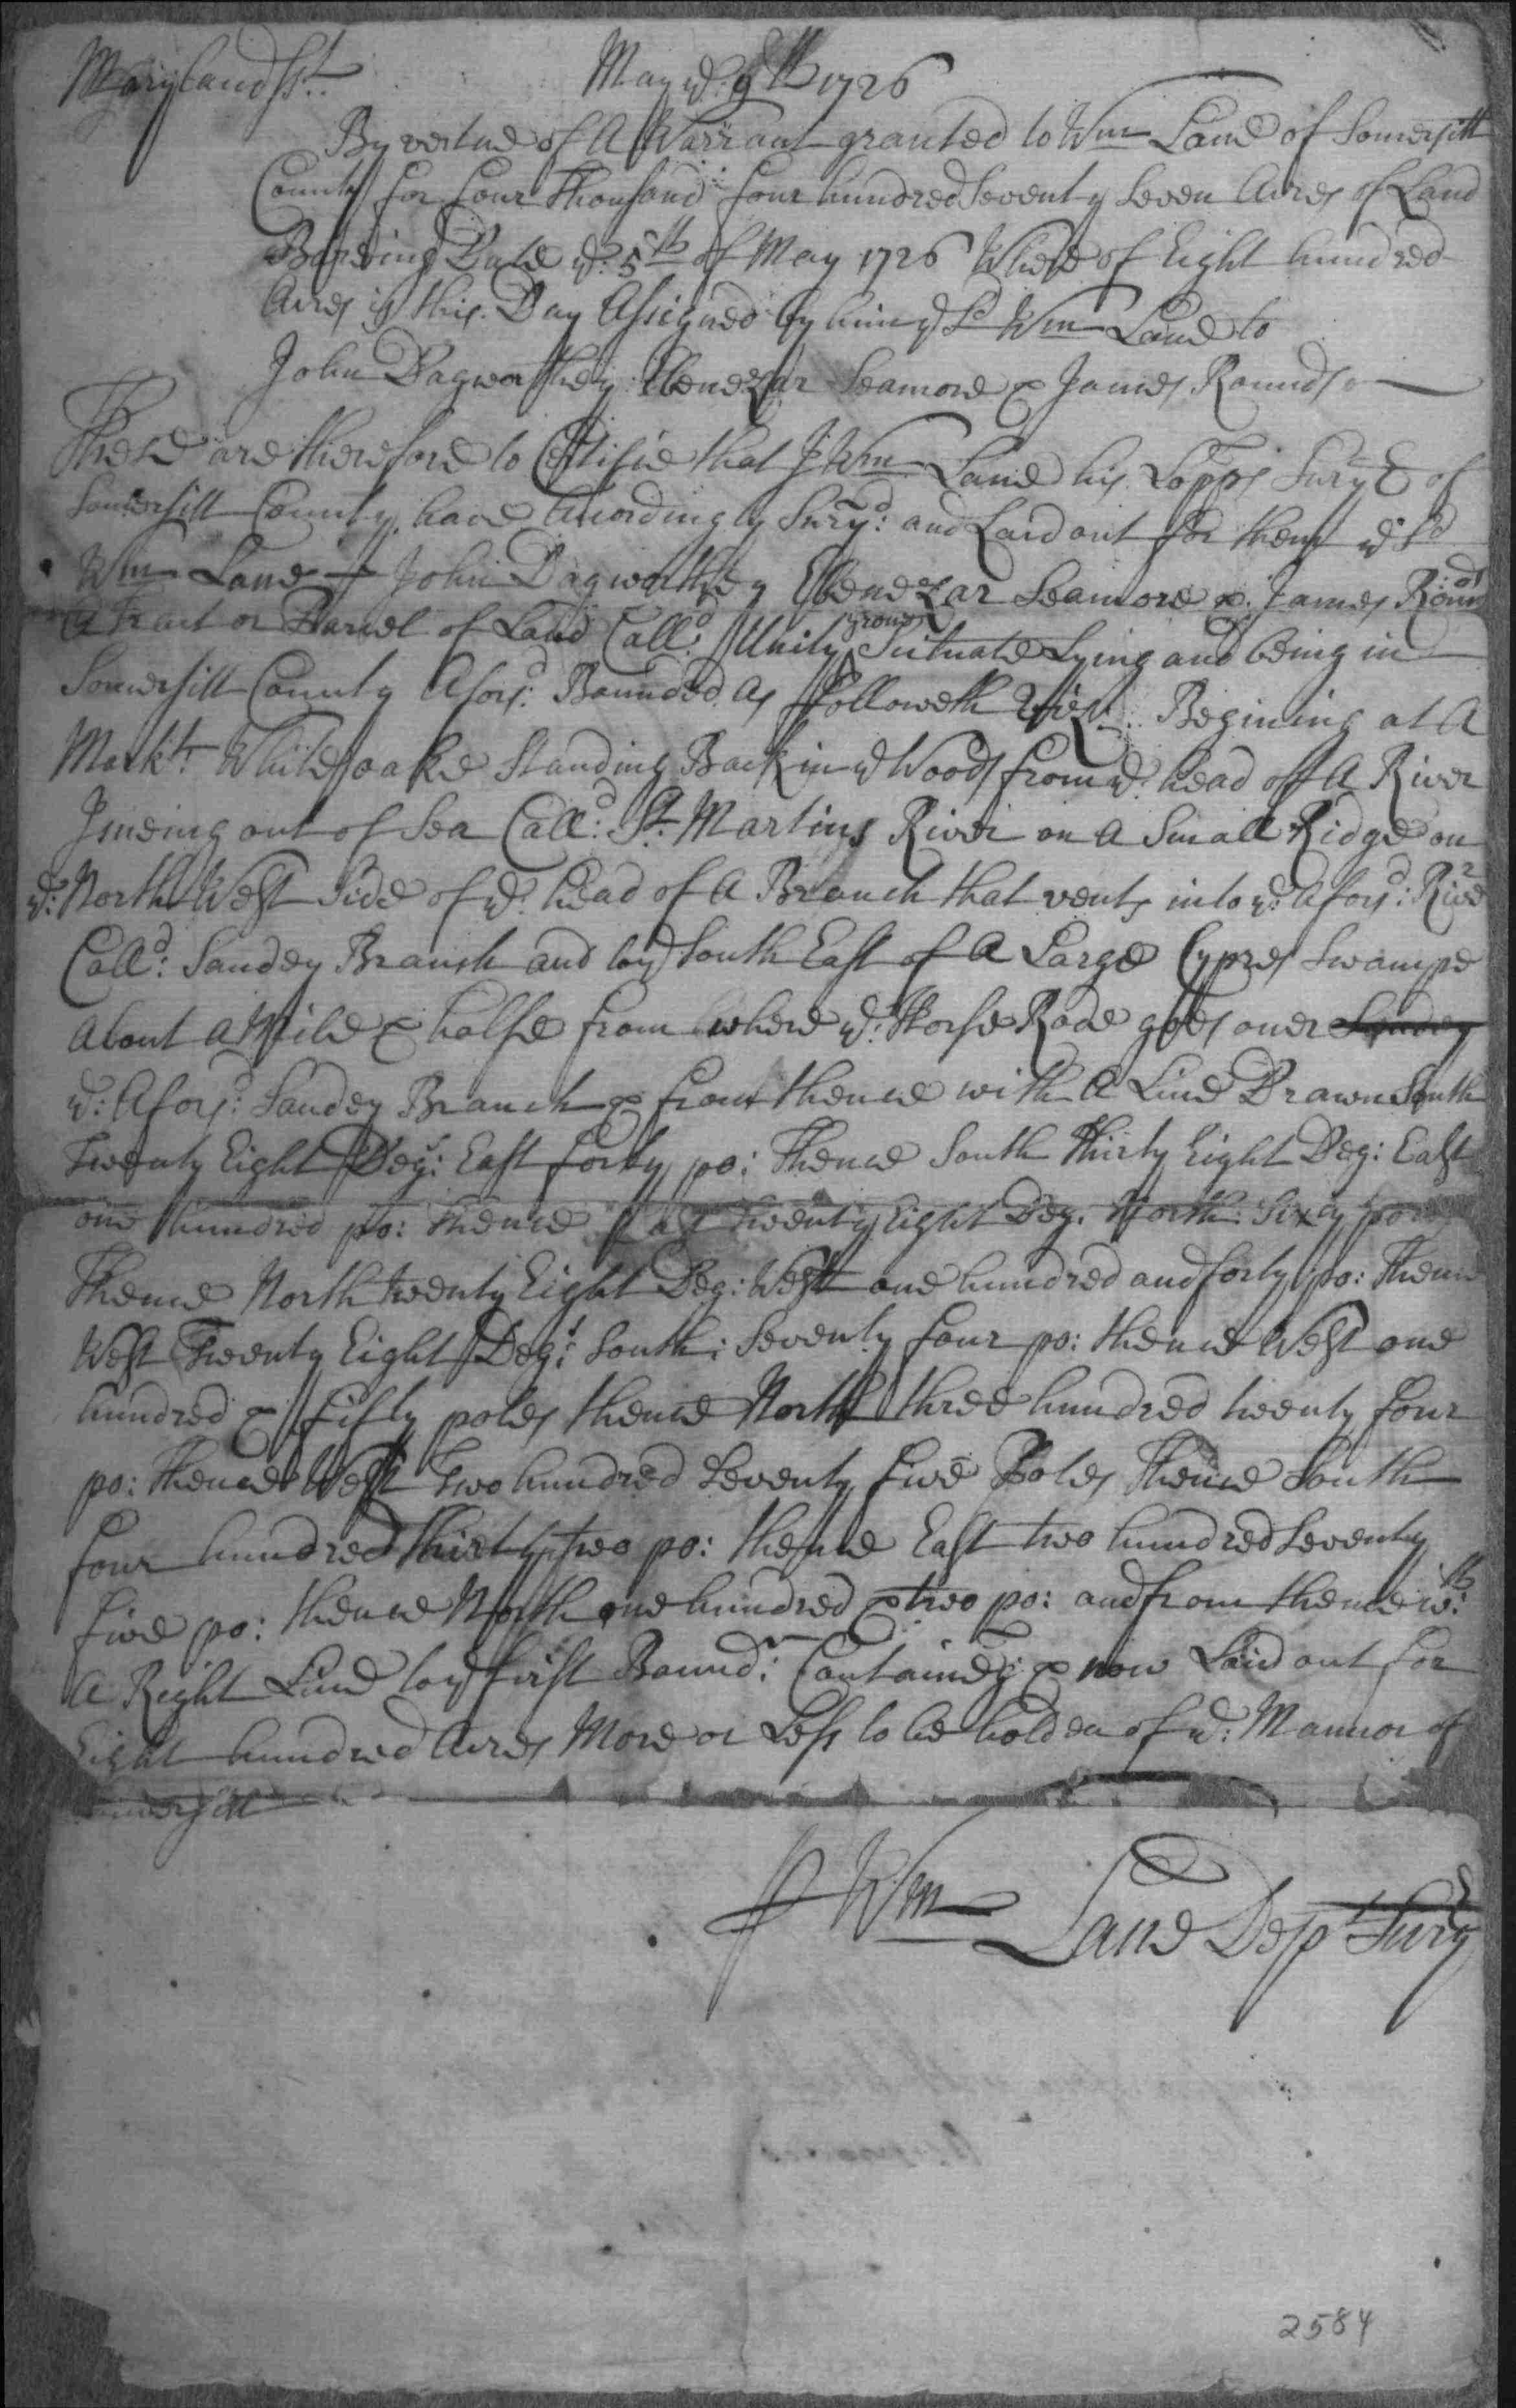 Maryland Sst. May ye: 9th 1726
By vertue of A Warrant granted to Wm Lane of Somersitt
County for four Thousand four hundred Seventy Seven Acres of Land
Bareing Date ye: 5th of May 1726 Where of Eight hundred
Acres is this Day Assigned by him ye Sd Wm Lane to
John Dagworthey Ebenezar Seamore & James Rounds
These are therefore to Certifie that I Wm Lane his Lopps Survr of
Somersitt County have Accordingly Survd: and Laid out for them ye Sd
Wm Lane John Dagworthey Ebenezar Seamore & James Rounds
A Tract or Parcel of Land Calld: Unity grove Scituate Lying and being in
Somersitt County Aforsd: Bounded As Followeth Viz: Begining at A
Markt. White oake Standing Back in ye Woods from ye: head of A River
Isueing out of Sea Calld: St. Martins River on A Small Ridge on
ye: North West Side of ye: head of A Branch that vents into ye: Aforsd: River
Calld: Sandey Branch and to ye South East of A Large Cypres Swampe
About A Mile & halfe from where ye: Horse Rode goes over Sandey
ye: Aforsd: Sandey Branch & from thence with A Line Drawn South
Twenty Eight Degr: East forty po: Thence South Thirty Eight Deg: East
one hundred po: thence East Twenty Eight Deg. North: Sixty po
Thence North twenty Eight Deg: West one hundred and forty po: Thence
West Twenty Eight Degr: South: Seventy four po: thence West one
hundred & fifty poles thence North three hundred twenty four
po: Thence West Two hundred Seventy five Poles Thence South
four hundred Thirty two po: thence East two hundred Seventy
five po: thence North one hundred & two po: and from thence wth:
A Right Line to ye first Bound: Containeg: & now Laid out for
Eight hundred Acres More or Less to be holden of ye: Mannor of
Somersitt
P Wm Lane Dept Survr
2584